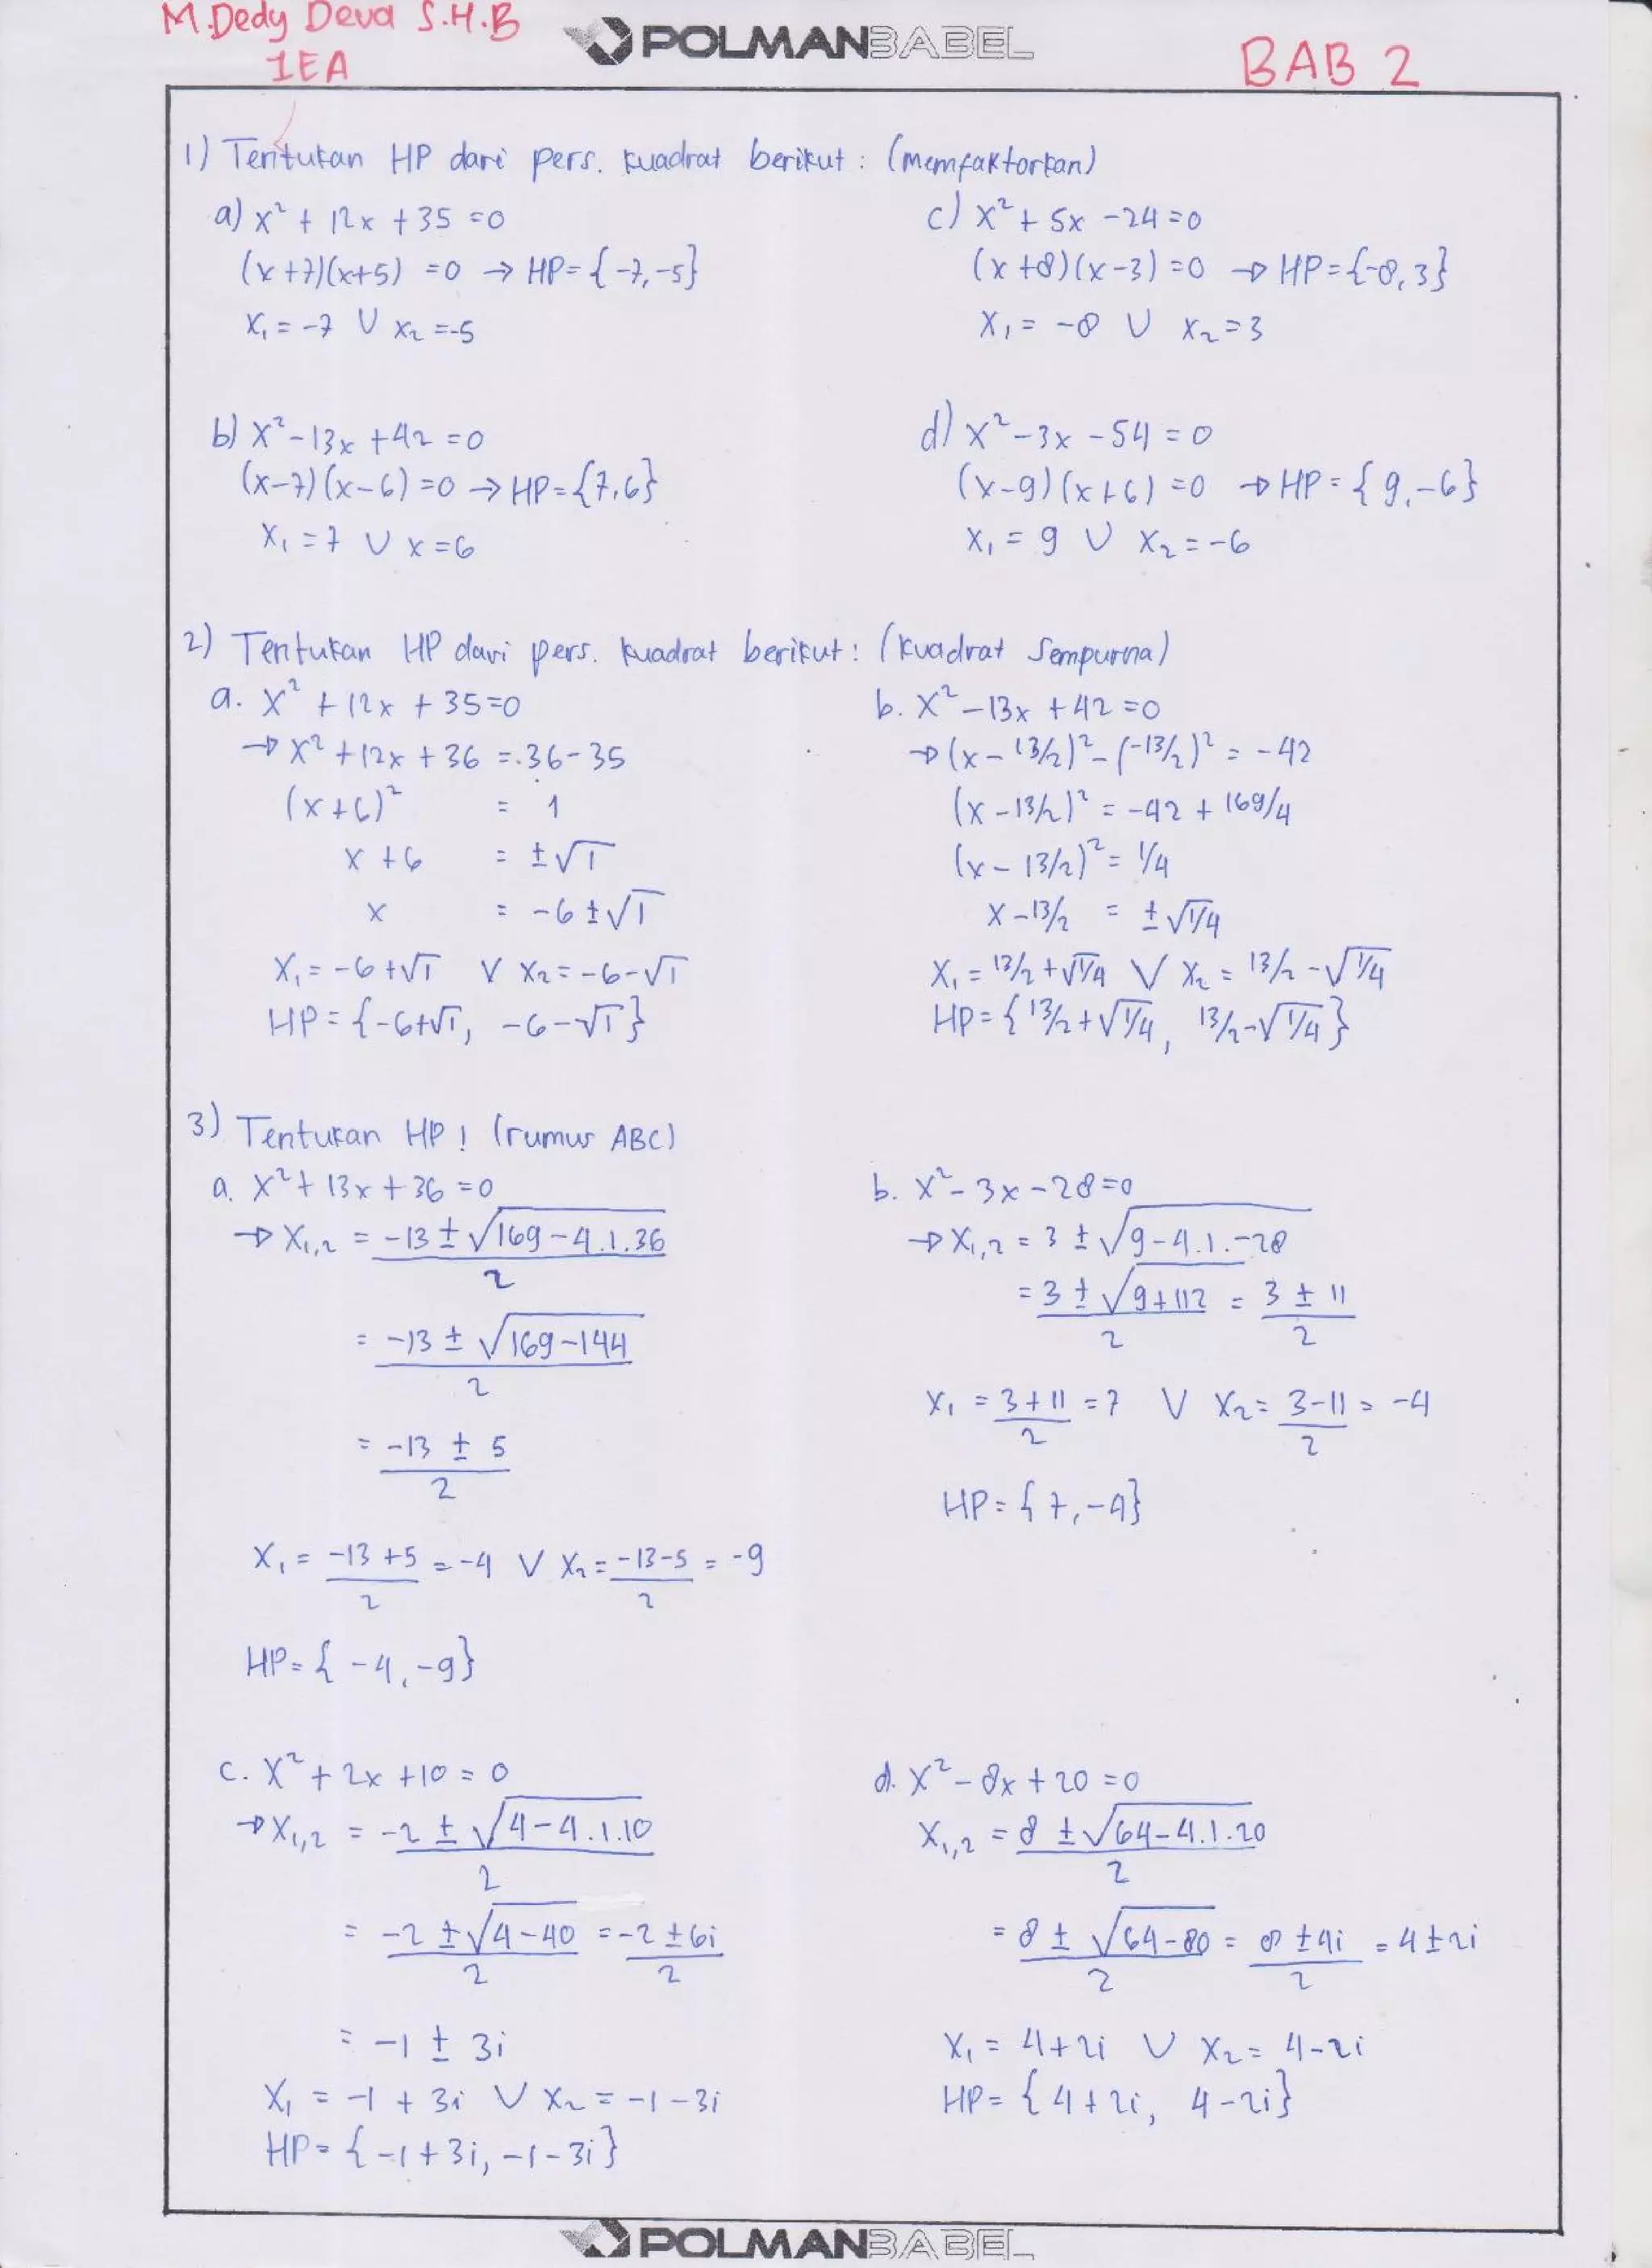 M.Dedy Deva S.H.B
1EA
POLMANBABEL
BAB 2
1) Tentukan HP dari pers. kuadrat berikut : (memfaktorkan)
a) x² + 12x + 35 = 0
(x+7)(x+5) = 0 → HP = {-7, -5}
x₁ = -7 ∪ x₂ = -5
c) x² + 5x - 24 = 0
(x+8)(x-3) = 0 → HP = {-8, 3}
x₁ = -8 ∪ x₂ = 3
b) x² - 13x + 42 = 0
(x-7)(x-6) = 0 → HP = {7, 6}
x₁ = 7 ∪ x = 6
d) x² - 3x - 54 = 0
(x-9)(x+6) = 0 → HP = {9, -6}
x₁ = 9 ∪ x₂ = -6
2) Tentukan HP dari pers. kuadrat berikut : (kuadrat Sempurna)
a. x² + 12x + 35 = 0
→ x² + 12x + 36 = 36 - 35
(x+6)² = 1
x + 6 = ±√1
x = -6 ± √1
x₁ = -6 + √1 ∨ x₂ = -6 - √1
HP = {-6+√1, -6-√1}
b. x² - 13x + 42 = 0
→ (x - 13/2)² - (-13/2)² = -42
(x - 13/2)² = -42 + 169/4
(x - 13/2)² = 1/4
x - 13/2 = ±√1/4
x₁ = 13/2 + √1/4 ∨ x₂ = 13/2 - √1/4
HP = {13/2 + √1/4, 13/2 - √1/4}
3) Tentukan HP! (rumus ABC)
a. x² + 13x + 36 = 0
→ x₁,₂ = -13 ± √169 - 4.1.36
2
= -13 ± √169 - 144
2
= -13 ± 5
2
x₁ = -13 + 5 = -4 ∨ x₂ = -13 - 5 = -9
2 2
HP = {-4, -9}
b. x² - 3x - 28 = 0
→ x₁,₂ = 3 ± √9 - 4.1.-28
= 3 ± √9 + 112 = 3 ± 11
2 2
x₁ = 3 + 11 = 7 ∨ x₂ = 3 - 11 = -4
2 2
HP = {7, -4}
c. x² + 2x + 10 = 0
→ x₁,₂ = -2 ± √4 - 4.1.10
2
= -2 ± √4 - 40 = -2 ± 6i
2 2
= -1 ± 3i
x₁ = -1 + 3i ∨ x₂ = -1 - 3i
HP = {-1 + 3i, -1 - 3i}
d. x² - 8x + 20 = 0
x₁,₂ = 8 ± √64 - 4.1.20
2
= 8 ± √64 - 80 = 8 ± 4i = 4 ± 2i
2 2
x₁ = 4 + 2i ∪ x₂ = 4 - 2i
HP = {4 + 2i, 4 - 2i}
POLMANBABEL